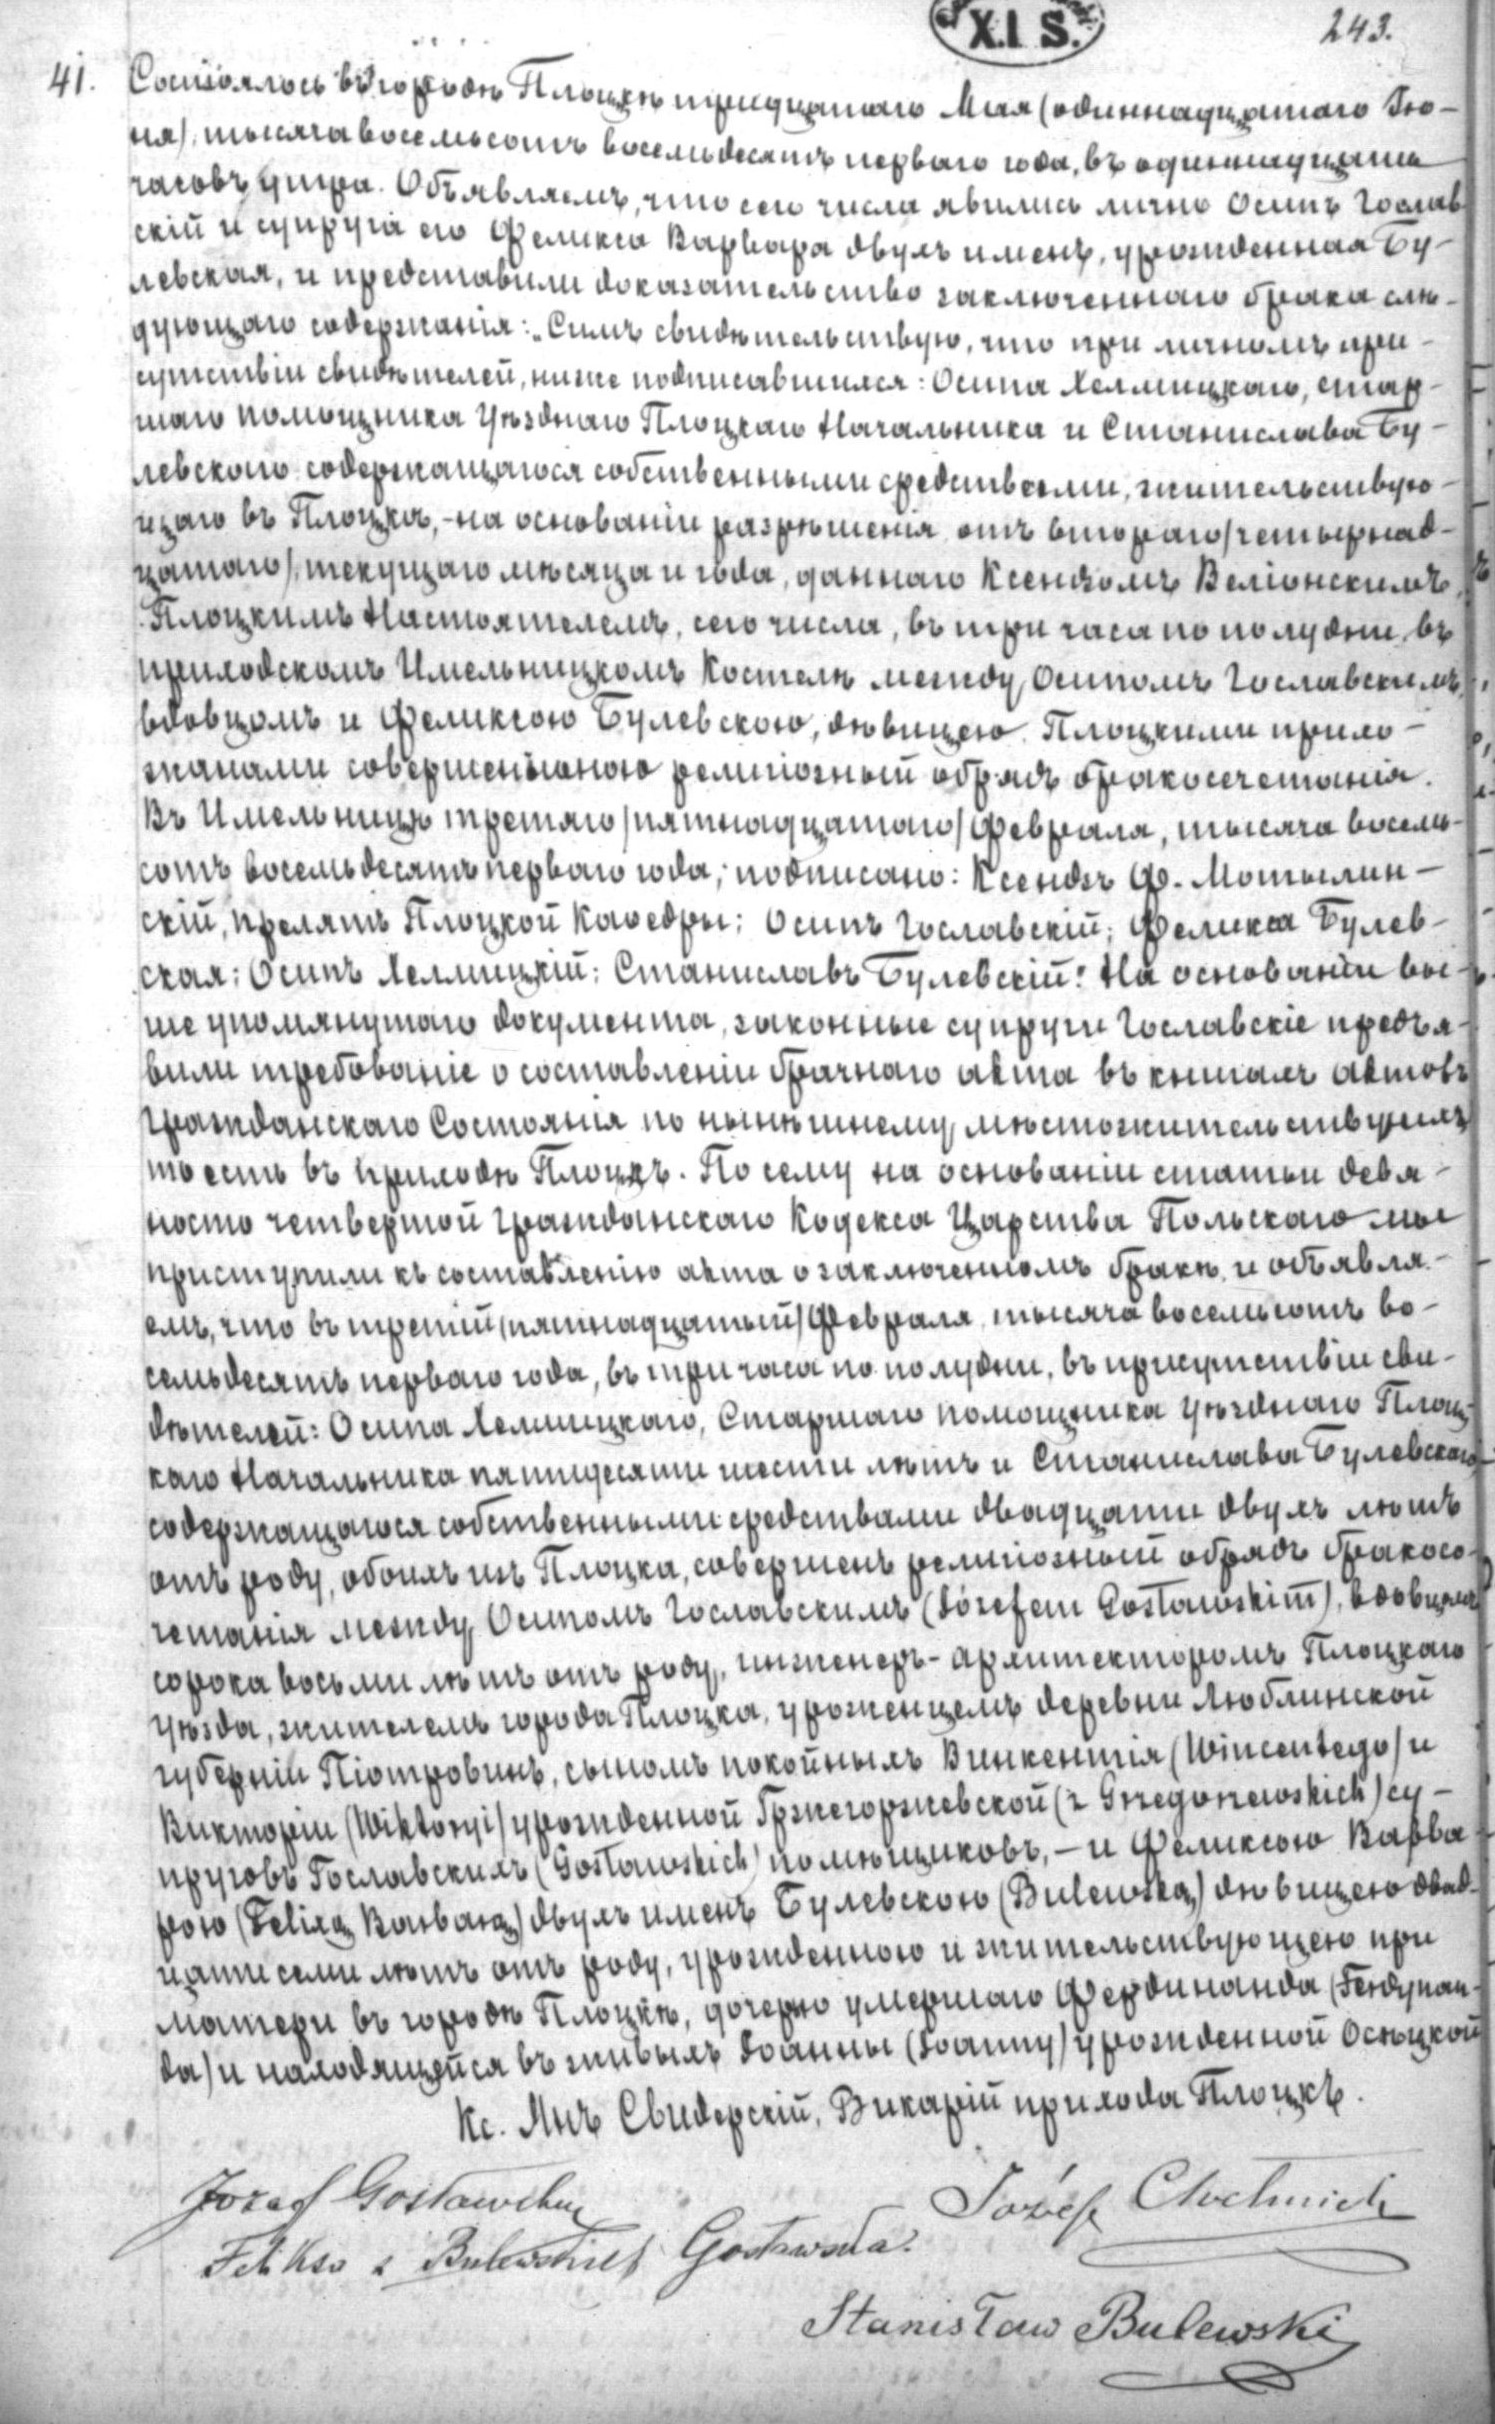 X.I S.
243.
41. Состоялось въ городѣ Плоцкѣ тридцатаго Мая (одиннадцатаго Iю-
ня) тысяча восемьсотъ восемьдесятъ перваго года, въ одиннадцать
часовъ утра. Объявляемъ, что сего числа явились лично Осипъ Гослав-
скій и супруга его Феликса Варвара двухъ именъ, урожденная Бу-
левская, и представили доказательство заключеннаго брака слѣ-
дующаго содержанія: „Симъ свидѣтельствую, что при личномъ при-
сутствіи свидѣтелей, ниже подписавшихся: Осипа Хелмицкаго, стар-
шаго помощника Уѣзднаго Плоцкаго Начальника и Станислава Бу-
левскаго содержащагося собственными средствами, жительствую-
щаго въ Плоцкѣ, - на основаніи разрѣшенія отъ втораго/четырнад-
цатаго/ текущаго мѣсяца и года, даннаго Ксендзомъ Веліонскимъ,
Плоцкимъ Настоятелемъ, сего числа, въ три часа по полудни, въ
приходскомъ Имельницкомъ Костелѣ между Осипомъ Гославскимъ,
вдовцомъ и Феликсою Булевскою, дѣвицею Плоцкими прихо-
жанами совершенъ мною религіозный обрядъ бракосочетанія.
Въ Имельницѣ третяго/пятнадцатаго/ Февраля, тысяча восемь-
сотъ восемьдесятъ перваго года; подписано: Ксендзъ Ф. Мотылин-
скій, прелятъ Плоцкой Каѳедры; Осипъ Гославскій; Феликса Булев-
ская; Осипъ Хелмицкій; Станиславъ Булевскій". На основаніи вы-
ше упомянутаго документа, законные супруги Гославскіе предъя-
вили требованіе о составленіи брачнаго акта въ книгахъ актовъ
Гражданскаго Состоянія по нынѣшнему мѣстожительству ихъ
то есть въ приходѣ Плоцкъ. По сему на основаніи статьи девя-
носто четвертой Гражданскаго Кодекса Царства Польскаго мы
приступили къ составленію акта о заключенномъ бракѣ и объявля-
емъ, что въ третій (пятнадцатый) Февраля тысяча восемьсотъ во-
семьдесятъ перваго года, въ три часа по полудни, въ присутствіи сви-
дѣтелей: Осипа Хелмицкаго, Старшаго помощника Уѣзднаго Плоц-
каго Начальника пятидесяти шести лѣтъ и Станислава Булевскаго
содержащагося собственными средствами двадцати двухъ лѣтъ
отъ роду, обоихъ изъ Плоцка, совершенъ религіозный обрядъ бракосо-
четанія между Осипомъ Гославскимъ (Józefem Gosławskim), вдовцомъ
сорока восьми лѣтъ отъ роду, инженеръ-архитекторомъ Плоцкаго
Уѣзда, жителемъ города Плоцка, уроженцемъ деревни Люблинской
губерніи Піотровинъ, сыномъ покойныхъ Винкентія (Wincentego) и
Викторіи (Wiktoryi) урожденной Гржегоржевской (z Grzegorzewskich) су-
пруговъ Гославскихъ (Gosławskich) помѣщиковъ, - и Феликсою Варва-
рою (Felixą Barbarą) двухъ именъ Булевскою (Bulewską) дѣвицею двад-
цати семи лѣтъ отъ роду, урожденною и жительствующею при
матери въ городѣ Плоцкѣ, дочерью умершаго Фердинанда (Ferdynan-
da) и находящейся въ живыхъ Iоанны (Joanny) урожденной Осѣцкой
Кс. Мнъ Свидерскій, Викарій прихода Плоцкъ.
Jozef Gosławski
Józef Chełmicki
Feliksa z Bulewskich Gosławska.
Stanisław Bulewski